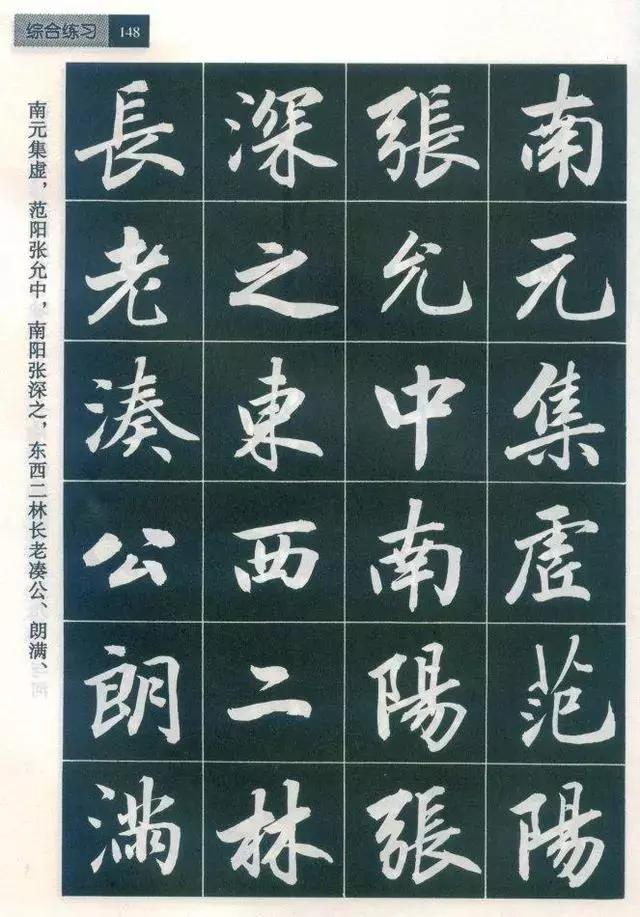 综合练习 148
南元集虚范陽
張允中南陽張
深之東西二林
長老湊公朗滿
南元集虚，范阳张允中，南阳张深之，东西二林长老凑公、朗满、